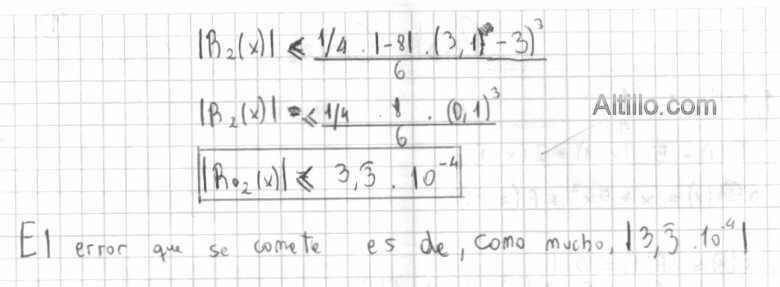 |R₂(x)| ⩽ 1/4 · |-8| · (3,1 - 3)³ / 6
|R₂(x)| = ⩽ 1/4 · 8 · (0,1)³ / 6
Altillo.com
|R₂(x)| ⩽ 3,3̄ · 10⁻⁴
El error que se comete es de, como mucho, |3,3̄ · 10⁻⁴|